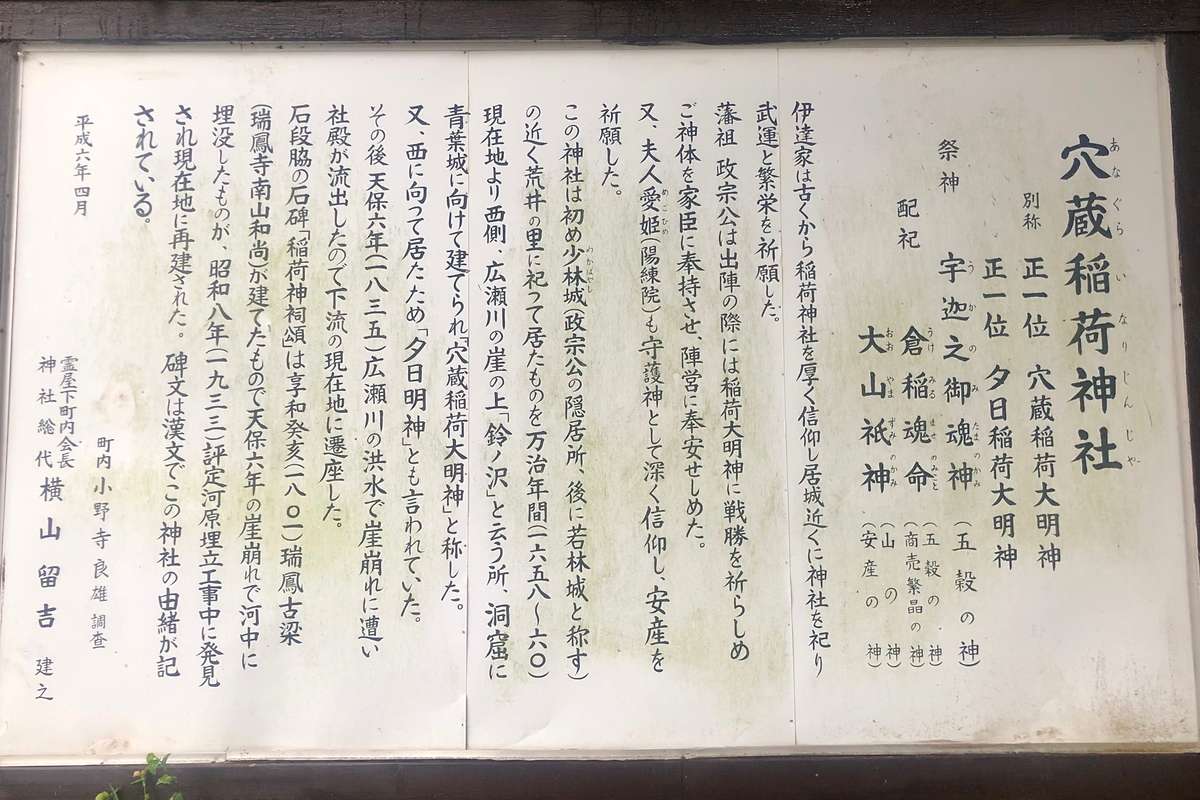 穴蔵稲荷神社
あなぐらいなりじんじゃ
別称 正一位 穴蔵稲荷大明神
正一位 夕日稲荷大明神
祭神 宇迦之御魂神 (五穀の神)
うかのみたまのかみ
配祀 倉稲魂命 (五穀の神)(商売繁晶の神)
うけみるませのみこと
大山祇神 (山の神)(安産の神)
おおやまずみのかみ
伊達家は古くから稲荷神社を厚く信仰し居城近くに神社を祀り
武運と繁栄を祈願した。
藩祖 政宗公は出陣の際には稲荷大明神に戦勝を祈らしめ
ご神体を家臣に奉持させ、陣営に奉安せしめた。
又、夫人愛姫(陽練院)も守護神として深く信仰し、安産を
めごひめ
祈願した。
この神社は初め少林城(政宗公の隠居所、後に若林城と称す)
わかばやし
の近く荒井の里に祀つて居たものを万治年間(一六五八〜六〇)
現在地より西側、広瀬川の崖の上「鈴ノ沢」と云う所、洞窟に
青葉城に向けて建てられ「穴蔵稲荷大明神」と称した。
又、西に向って居たため「夕日明神」とも言われていた。
その後天保六年(一八三五)広瀬川の洪水で崖崩れに遭い
社殿が流出したので下流の現在地に遷座した。
石段脇の石碑「稲荷神祠頌」は享和癸亥(一八〇一)瑞鳳古梁
(瑞鳳寺南山和尚が建てたもので天保六年の崖崩れで河中に
埋没したものが、昭和八年(一九三三)評定河原埋立工事中に発見
され現在地に再建された。碑文は漢文でこの神社の由緒が記
されている。
平成六年四月
町内 小野寺良雄 調査
霊屋下町内会長
神社総代 横山留吉 建之